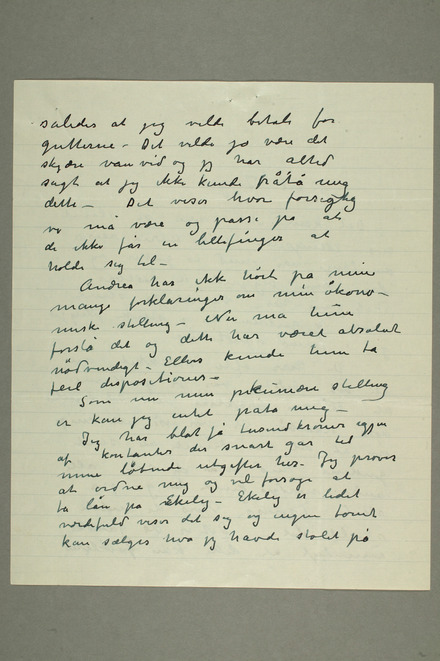 således at jeg vilde betale for
gutterne – Det vilde jo være det
skjære vanvid og jeg har altid
sagt at jeg ikke kunde påtå mig
dette – Det viser hvor forsigtig
vi må være og passe på at
de ikke får en lillefinger at
holde sig til –
Andrea har ikke hört på mine
mange forklaringer om min ökono-
miske stilling – Nu må hun
forstå det og dette har været absolut
nödvendigt – Ellers kunde hun ta
feil dispositioner –
Som nu min pekuniære stilling
er kan jeg intet påta mig –
Jeg har blot få tusind kroner igjen
af kontanter der snart går til
mine löbende utgifter her. Jeg pröver
at ordne mig og vil forsöge at
ta lån på Ekely – Ekely er lidet
værdifuld viser det sig og ingen tomt
kan sælges hva jeg havde stolet på